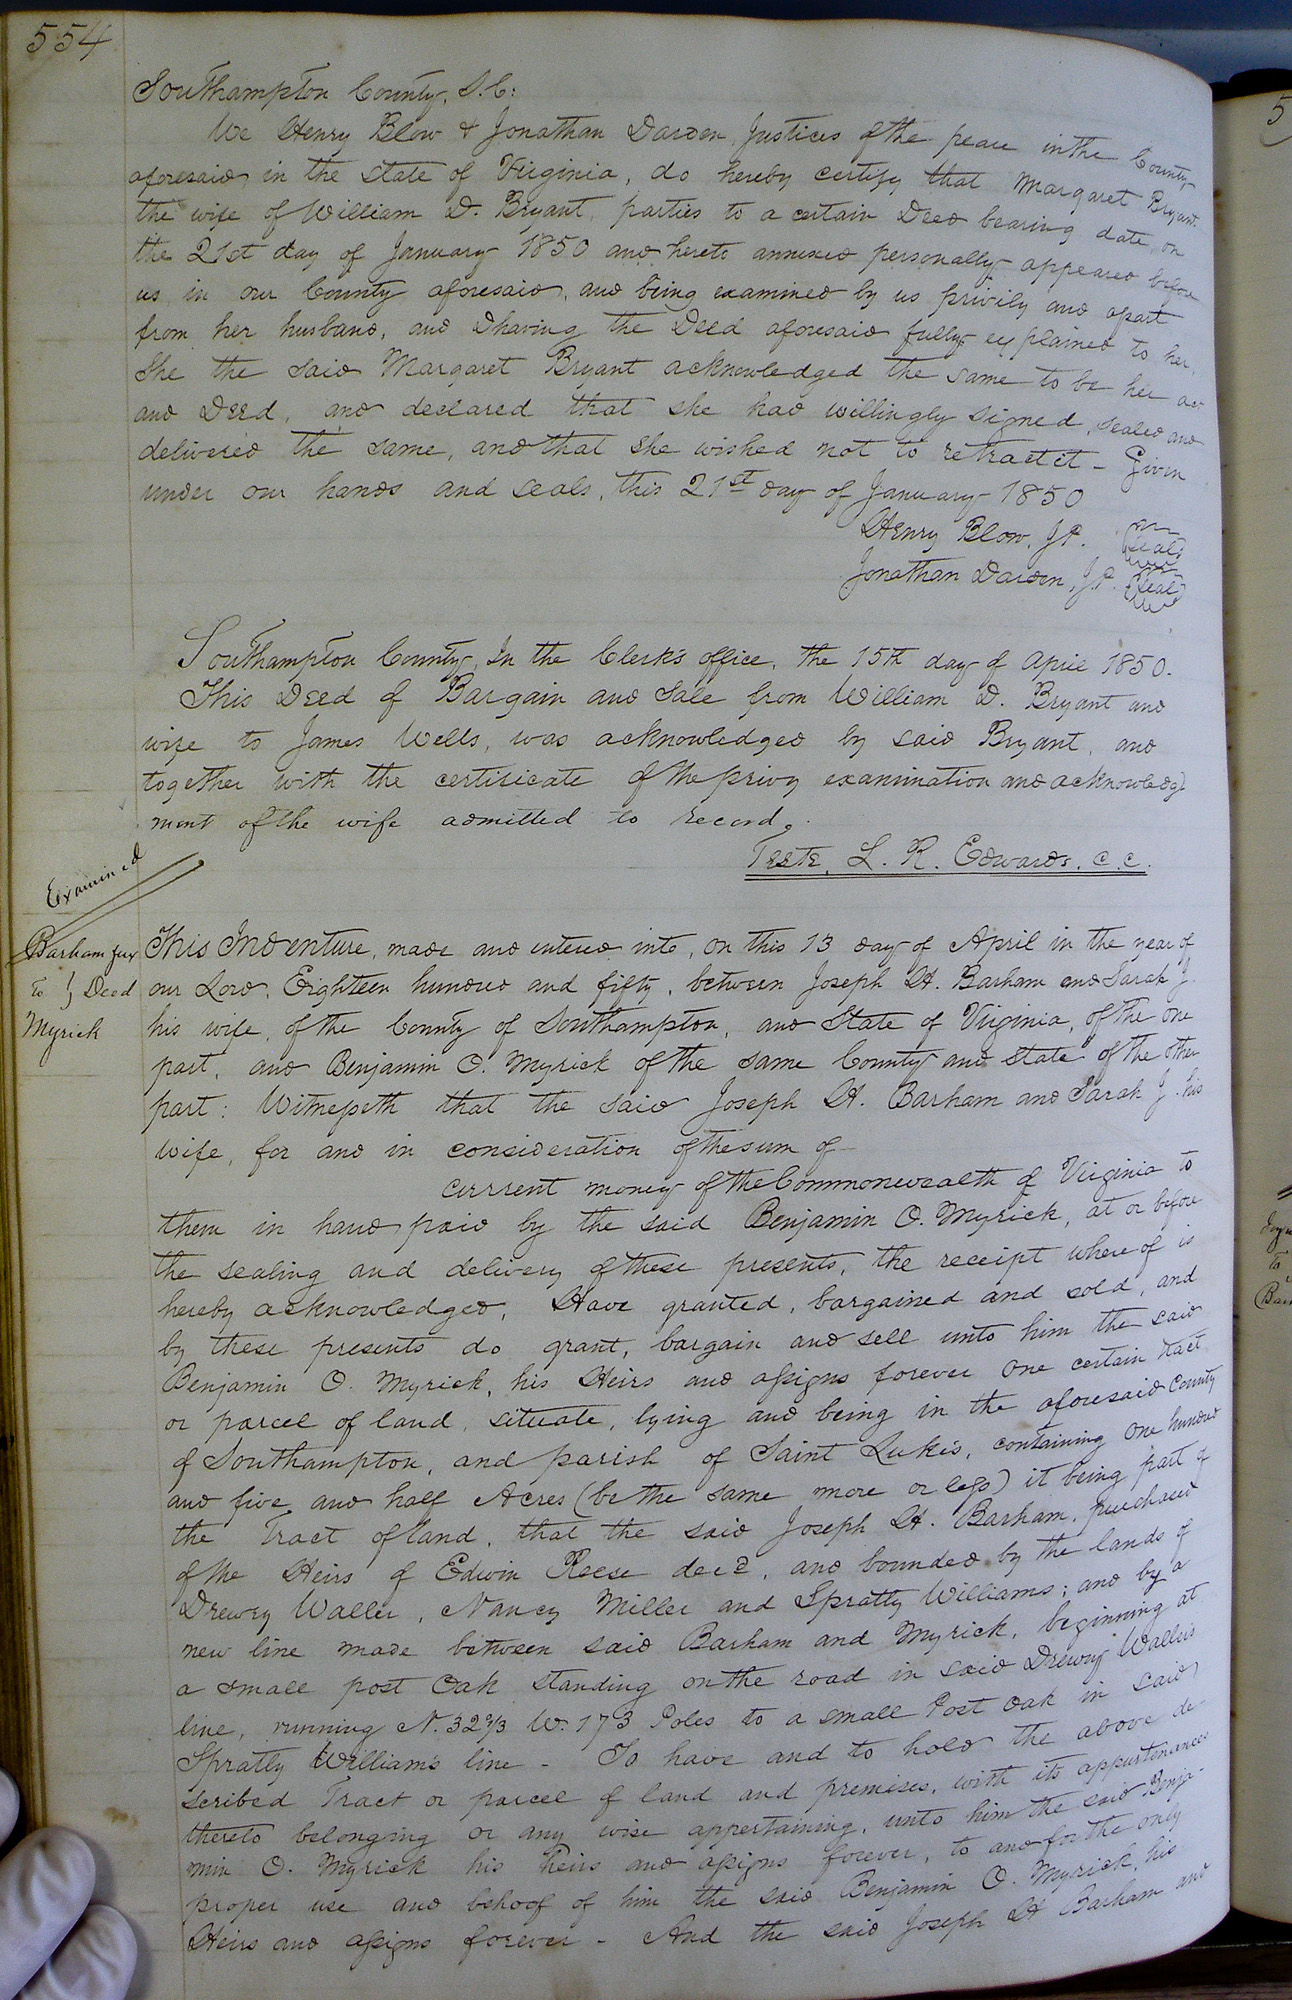 554
Southampton County, S.C:
We Henry Blow & Jonathan Darden, Justices of the peace in the County
aforesaid, in the State of Virginia, do hereby certify that Margaret Bryant
the wife of William D. Bryant, parties to a certain Deed bearing date on
the 21st day of January 1850 and hereto annexed personally appeared before
us in our County aforesaid, and being examined by us privily and apart
from her husband, and having the Deed aforesaid fully explained to her,
She the said Margaret Bryant acknowledged the same to be her act
and Deed, and declared that she had willingly signed, sealed and
delivered the same, and that she wished not to retract it - Given
under our hands and seals, this 21st day of January 1850
Henry Blow, J.P. Seal
Jonathan Darden, J.P. Seal
Southampton County, In the Clerk's office, the 15th day of April 1850.
This Deed of Bargain and Sale from William D. Bryant and
wife to James Wells, was acknowledged by said Bryant, and
together with the certificate of the privy examination and acknowledg
ment of the wife admitted to record.
Teste, L. R. Edwards, C.C.
Examined
Barham & ux
to } Deed
Myrick
This Indenture, made and entered into, on this 13 day of April in the year of
our Lord, Eighteen hundred and fifty, between Joseph H. Barham and Sarah J.
his wife, of the County of Southampton, and State of Virginia, of the one
part, and Benjamin O. Myrick of the same County and State of the other
part: Witnesseth that the said Joseph H. Barham and Sarah J. his
wife, for and in consideration of the sum of
current money of the Commonwealth of Virginia to
them in hand paid by the said Benjamin O. Myrick, at or before
the sealing and delivery of these presents, the receipt where of is
hereby acknowledged, Have granted, bargained and sold, and
by these presents do grant, bargain and sell unto him the said
Benjamin O. Myrick, his Heirs and assigns forever one certain tract
or parcel of land, situate, lying and being in the aforesaid County
of Southampton, and parish of Saint Luke's, containing one hundred
and five and half Acres (be the same more or less) it being part of
the Tract of land, that the said Joseph H. Barham, purchased
of the Heirs of Edwin Reese decd, and bounded by the lands of
Drewry Waller, Nancy Miller and Spratly Williams; and by a
new line made between said Barham and Myrick, beginning at
a small post Oak standing on the road in said Drewry Waller's
line, running N. 32 2/3 W. 173 Poles to a small Post Oak in said
Spratly William's line - To have and to hold the above de
scribed Tract or parcel of land and premises, with its appurtenances
thereto belonging or any wise appertaining, unto him the said Benja-
min O. Myrick his heirs and assigns forever, to and for the only
proper use and behoof of him the said Benjamin O. Myrick, his
Heirs and assigns forever - And the said Joseph H Barham and
5
to